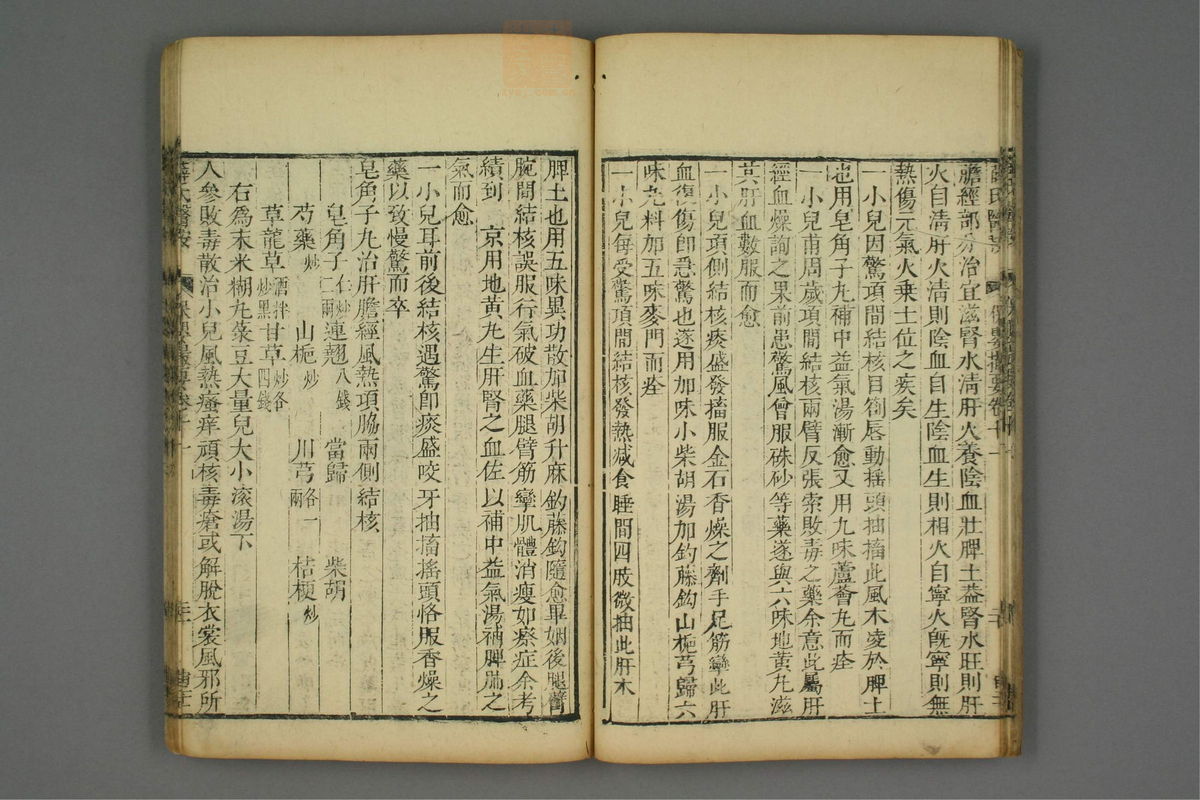 膽經部分治宜滋腎水清肝火養陰血壯脾土蓋腎水旺則肝
火自清肝火清則陰血自生陰血生則相火自寧火既寧則無
熱傷元氣火乗土位之疾矣
一小兒因驚項間結核目劄唇動摇頭抽搐此風木凌於脾土
也用皂角子丸補中益氣湯漸愈又用九味蘆薈丸而痊
一小兒甫周歲項間結核兩臂反張索敗毒之藥余意此屬肝
經血燥詢之果前患驚風曾服硃砂等藥遂與六味地黄丸滋
其肝血數服而愈
一小兒項側結核痰盛發搐服金石香燥之劑手足筋攣此肝
血復傷即急驚也遂用加味小柴胡湯加鈎藤鈎山梔芎歸六
味丸料加五味麥門而痊
一小兒每受驚項間結核發熱減食睡間四肢微抽此肝木
脾土也用五味異功散加柴胡升麻鈎藤鈎隨愈畢姻後腿臂
腕間結核誤服行氣破血藥腿臂筋攣肌體消瘦如瘵症余考
績到 京用地黄丸生肝腎之血佐以補中益氣湯補脾肺之
氣而愈
一小兒耳前後結核遇驚即痰盛咬牙抽搐搖頭恪服香燥之
藥以致慢驚而卒
皂角子丸治肝膽經風熱項脇兩側結核
皂角子仁炒二兩 連翹八錢 當歸 柴胡
芍藥炒 山梔炒 川芎各一兩 桔梗炒
草龍草酒拌炒黑 甘草炒各四錢
右為末米糊丸菉豆大量兒大小滚湯下
人參敗毒散治小兒風熱瘙痒頑核毒瘡或解脫衣裳風邪所